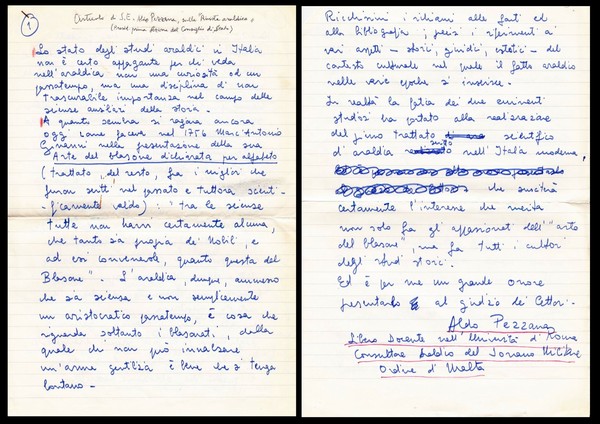 1
Articolo di S.E. Aldo Pezzana, sulla Rivista araldica
(Presid. prima sezione del Consiglio di Stato)
Lo stato degli studi araldici in Italia
non è certo appagante per chi veda
nell'araldica non una curiosità od un
passatempo, ma una disciplina di non
trascurabile importanza nel campo delle
scienze ausiliarie della storia.
A quanto sembra si ragiona ancora
oggi come faceva nel 1756 Marc'Antonio
Ginanni nella presentazione della sua
Arte del blasone dichiarata per alfabeto
(trattato, del resto, fra i migliori che
furon scritti nel passato e tuttora scienti-
ficamente valido): "tra le scienze
tutte non havvi certamente alcuna,
che tanto sia propria de' Nobili, e
ad essi convenevole, quanto questa del
Blasone". L'araldica, dunque, ammesso
che sia scienza e non semplicemente
un aristocratico passatempo, è cosa che
riguarda soltanto i blasonati, dalla
quale chi non può innalzare
un'arme gentilizia è bene che si tenga
lontano -
Ricchissimi i richiami alle fonti ed
alla bibliografia; precisi i riferimenti ai
vari aspetti - storici, giuridici, estetici - del
contesto culturale nel quale il fatto araldico
nelle varie epoche si inserisce.
In realtà la fatica dei due eminenti
studiosi ha portato alla realizzazione
del primo trattato scientifico
d'araldica scritto nell'Italia moderna,
che susciterà
certamente l'interesse che merita
non solo fra gli appassionati dell'"arte
del blasone", ma fra tutti i cultori
degli studi storici.
Ed è per me un grande onore
presentarlo al giudizio dei Lettori.
Aldo Pezzana
Libero Docente nell'Università di Roma
Consultore Araldico del Sovrano Militare
Ordine di Malta